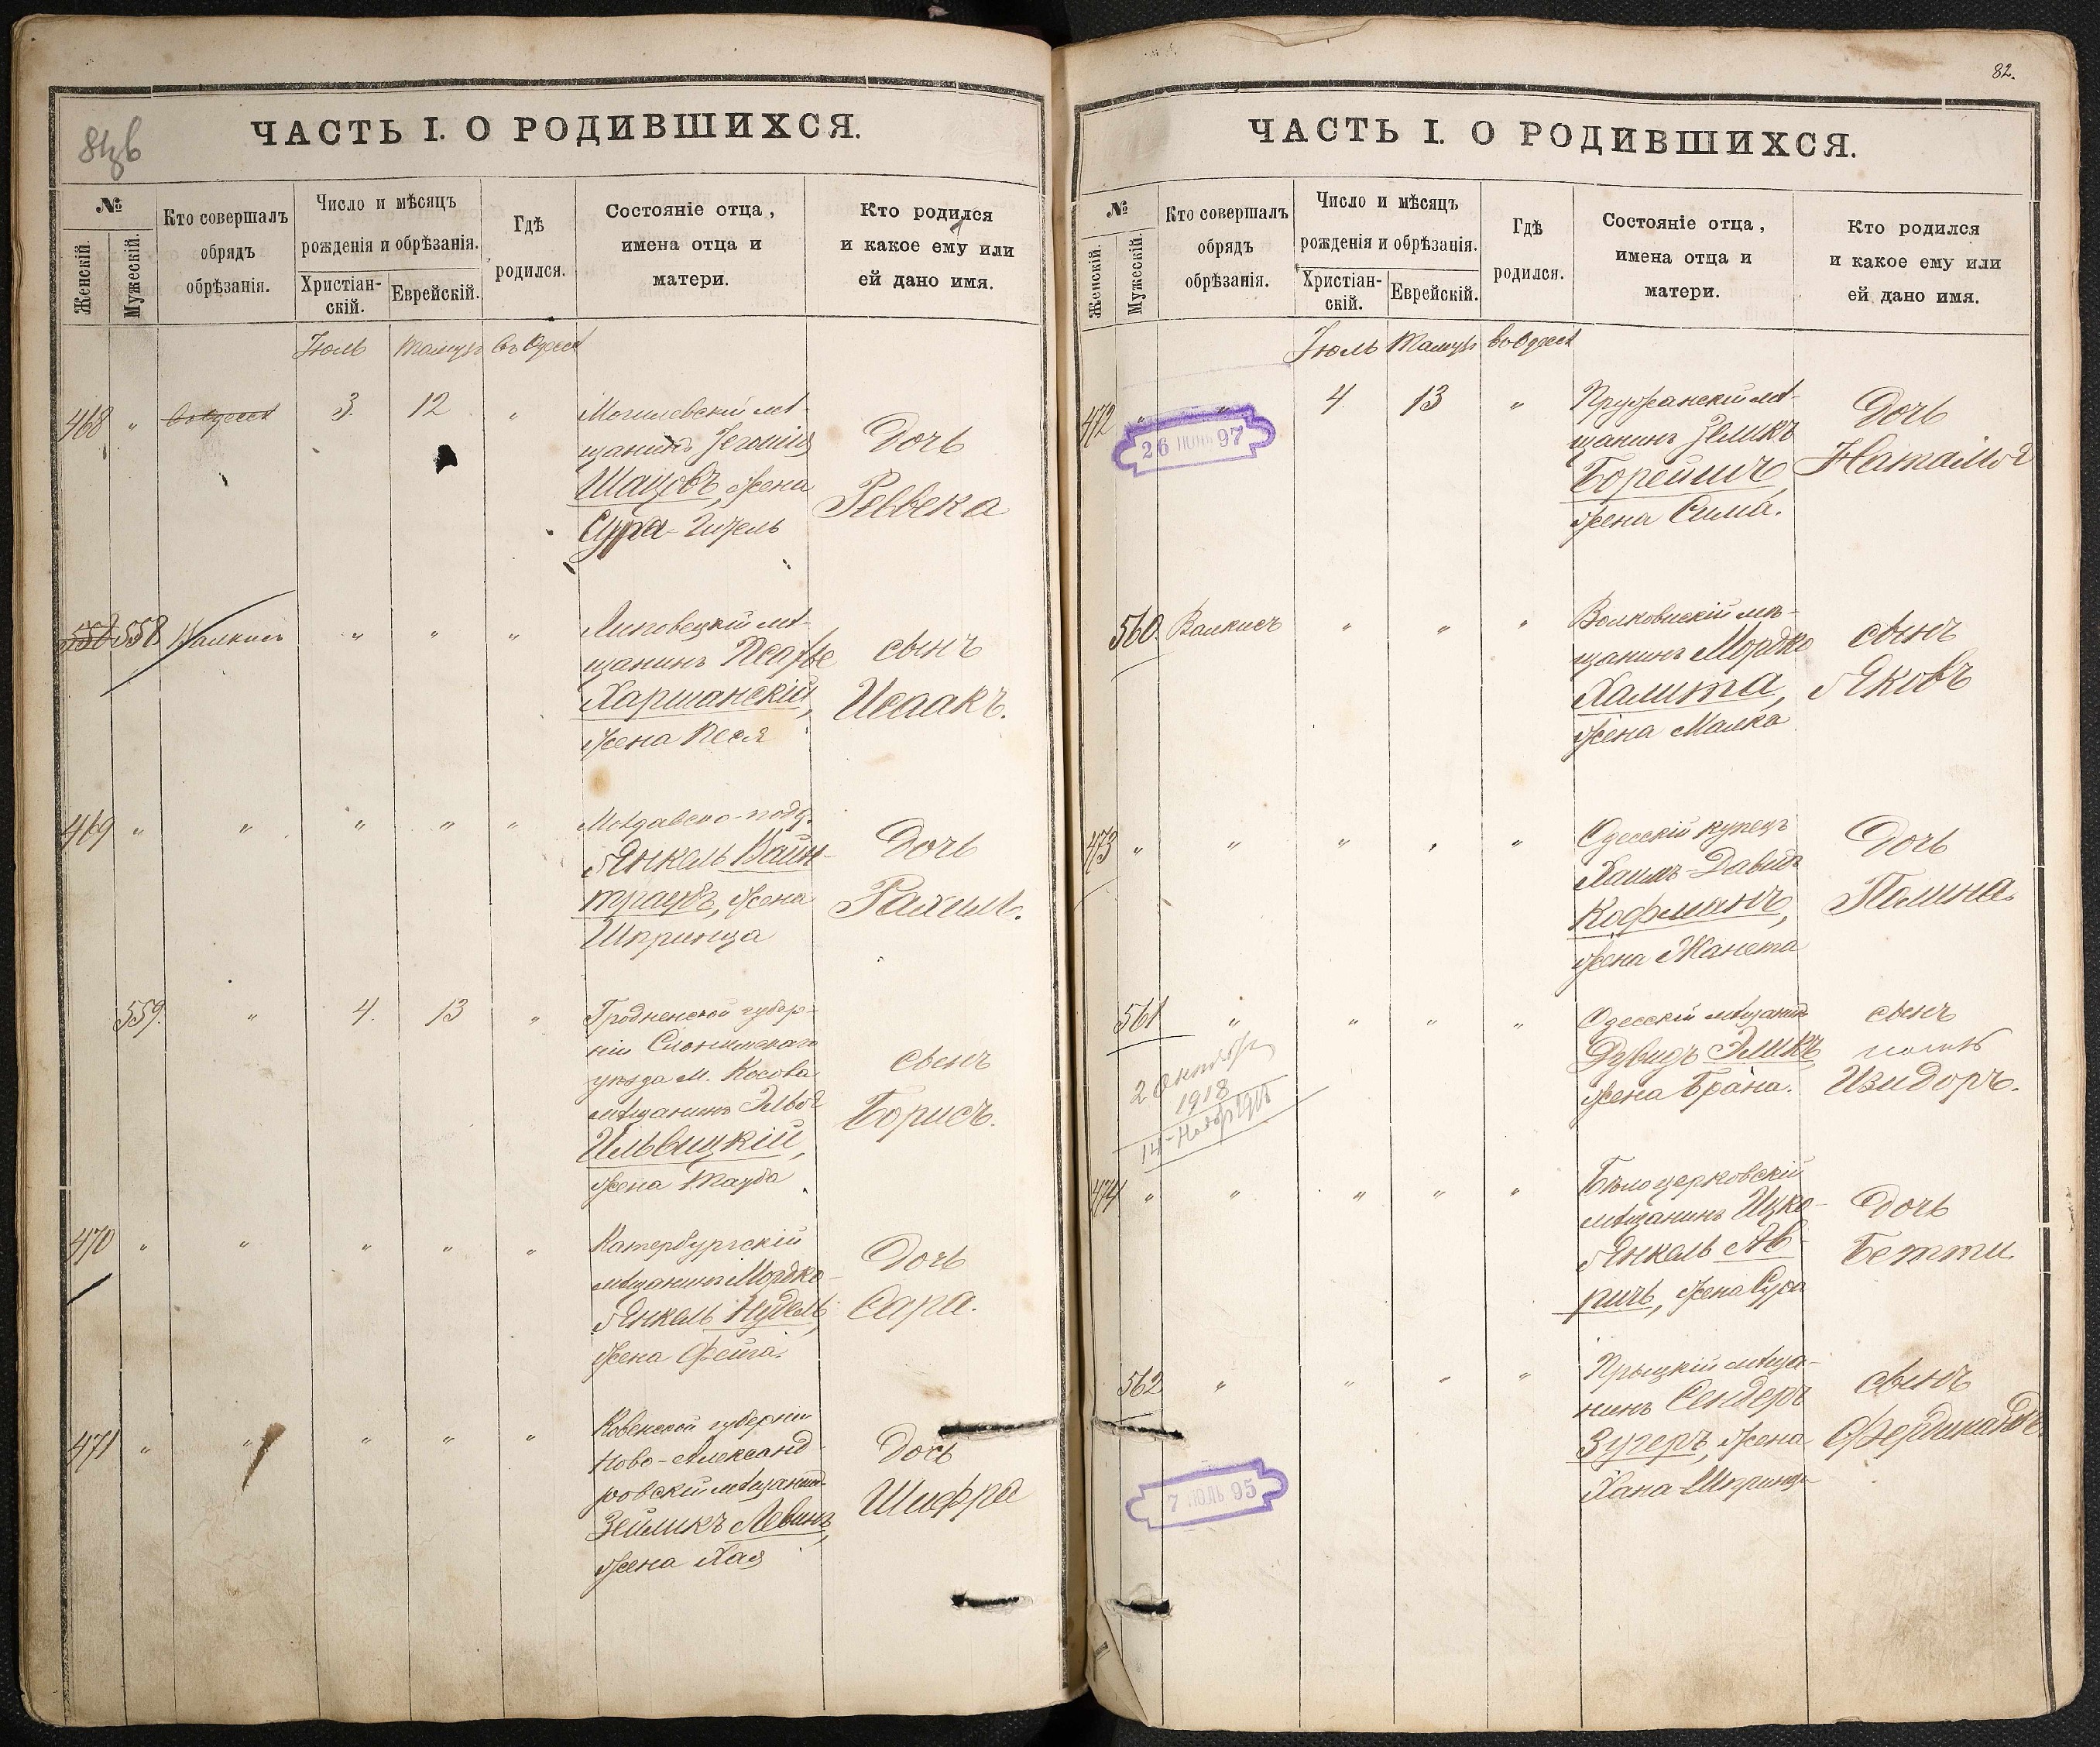 ЧАСТЬ I. О РОДИВШИХСЯ.
№
Женскій.
Мужескій.
Кто совершалъ
обрядъ
обрѣзанія.
Число и мѣсяцъ
рожденія и обрѣзанія.
Христіан-
скій.
Еврейскій.
Гдѣ
родился.
Состояніе отца,
имена отца и
матери.
Кто родился
и какое ему или
ей дано имя.
Іюль Тамузъ въ Одессѣ
468 " 3. 12 "
Могилевскій мѣ-
щанинъ
Шацовъ, жена
Сура-Гитель
Дочь
Ревека
558 558 "
" "
Липовецкій мѣ-
щанинъ
Харшанскій,
жена Песя
сынъ
Исаакъ.
469 " " " " "
Янкель Вайн-
траубъ, жена
Шпринца
Дочь
Рахиль.
559. " 4. 13 "
Гродненской губер-
ніи Слонимскаго
уѣзда м. Косова
мѣщанинъ
Ильвицкій,
жена Тауба
сынъ
Борисъ.
470 " " " " "
Катербургскій
мѣщанинъ Мордко-
Янкель Нудель,
жена Фейга.
Дочь
Сара.
471 " " " " "
Ковенской губерніи
Ново-Александ-
ровскій мѣщанинъ
Зеймикъ Левинъ,
жена Хая
Дочь
Шифра
82.
ЧАСТЬ I. О РОДИВШИХСЯ.
№
Женскій.
Мужескій.
Кто совершалъ
обрядъ
обрѣзанія.
Число и мѣсяцъ
рожденія и обрѣзанія.
Христіан-
скій.
Еврейскій.
Гдѣ
родился.
Состояніе отца,
имена отца и
матери.
Кто родился
и какое ему или
ей дано имя.
Іюль Тамузъ въ Одессѣ
472 " " 4. 13 "
26 97
Пружанскій мѣ-
щанинъ Зеликъ
Борейшъ,
жена Сима.
Дочь
Наталья
560 Валкисъ " " "
Волковискій мѣ-
щанинъ Мордко
Халита,
жена Малка
сынъ
Яковъ
473 " " " " "
Одесскій купецъ
Хаимъ-Давидъ
Кофманъ,
жена Жанета
Дочь
Полина.
561 " " " "
2 Октября
1918
Одесскій мѣщанинъ
Дувидъ Эликъ,
жена Брана.
сынъ
Изидоръ.
474 " " " " "
Бѣлоцерковскій
мѣщанинъ Ицко-
Янкель Ав-
ричъ, жена Сура
Дочь
Бетти
562 " " " "
7 ІЮЛЬ 95
мѣща-
нинъ Сендеръ
Зугеръ, жена
Хана-Шпринца
сынъ
Фердинандъ